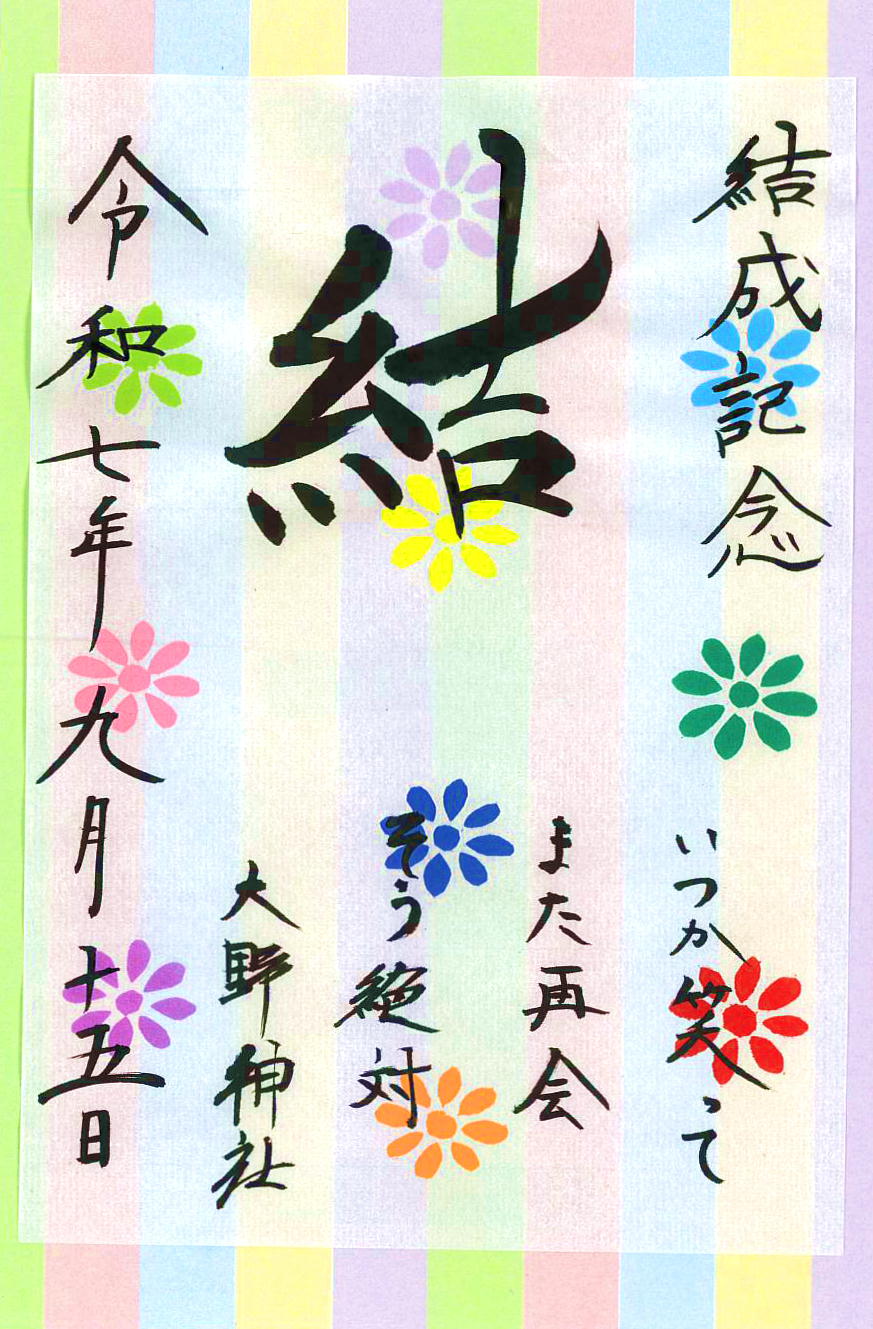 結成記念
結
いつか笑って
また再会
そう絶対
大野神社
令和七年九月十五日